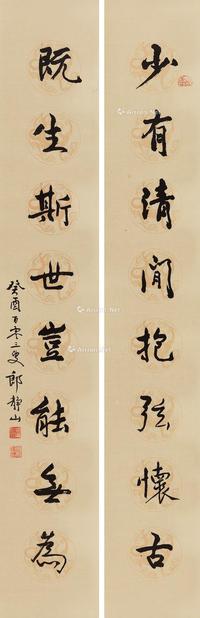 少有清闲抱弦懷古
既生斯世豈能無為
癸酉百零二叟郎靜山